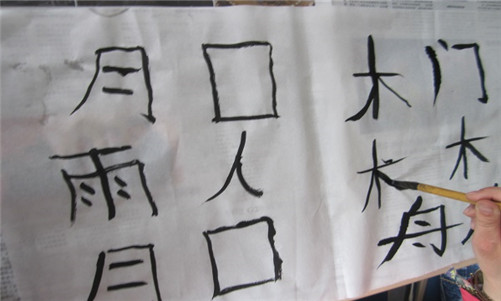 月 口 木 门
雨 人 木 木
月 口 舟